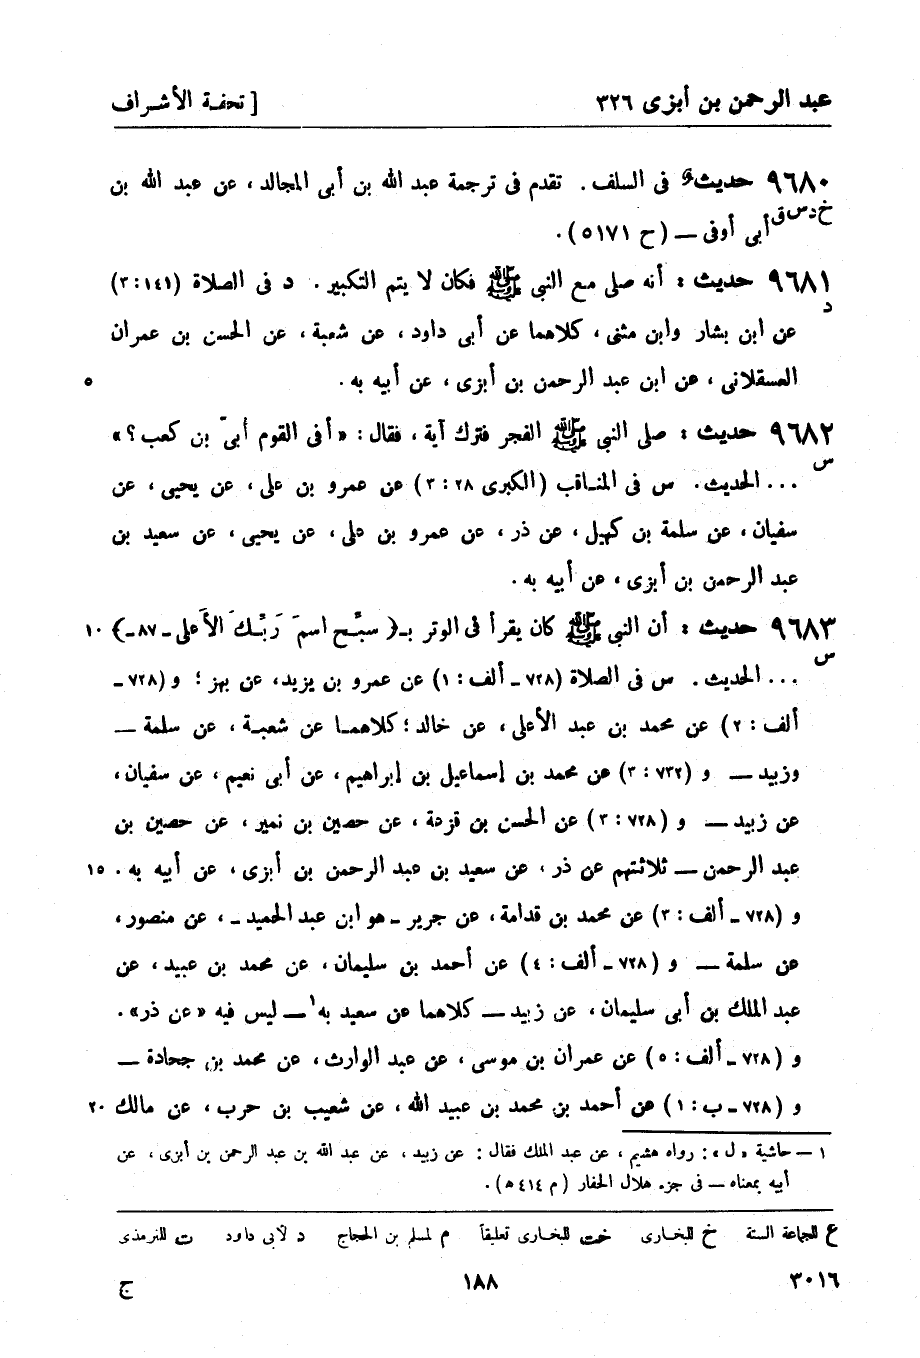 عبد الرحمن بن أبزى ٣٢٦
[ تحفة الأشراف
٩٦٨٠ حديث: فى السلف. تقدم فى ترجمة عبد الله بن أبى المجالد، عن عبد الله بن
خ د س ق
أبى أوفى — (ح ٥١٧١).
٩٦٨١ حديث: أنه صلى مع النبى ﷺ فكان لا يتم التكبير. د فى الصلاة (١٤١: ٣)
د
عن ابن بشار وابن مثنى، كلاهما عن أبى داود، عن شعبة، عن الحسن بن عمران
العسقلانى، عن ابن عبد الرحمن بن أبزى، عن أبيه به. ٥
٩٦٨٢ حديث: صلى النبى ﷺ الفجر فترك آية، فقال: «أفى القوم أبىّ بن كعب؟»
س
... الحديث. س فى المناقب (الكبرى ٢٨: ٣) عن عمرو بن على، عن يحيى، عن
سفيان، عن سلمة بن كهيل، عن ذر، عن عمرو بن على، عن يحيى، عن سعيد بن
عبد الرحمن بن أبزى، عن أبيه به.
٩٦٨٣ حديث: أن النبى ﷺ كان يقرأ فى الوتر بـ﴿ سبِّح اسمَ رَبِّكَ الأَعلى ـ ٨٧ـ﴾ ١٠
س
... الحديث. س فى الصلاة (٧٢٨ ـ ألف: ١) عن عمرو بن يزيد، عن بهز؛ و (٧٢٨ ـ
ألف: ٢) عن محمد بن عبد الأعلى، عن خالد؛ كلاهما عن شعبة، عن سلمة —
وزبيد — و (٧٣٢: ٣) عن محمد بن إسماعيل بن إبراهيم، عن أبى نعيم، عن سفيان،
عن زبيد — و (٧٢٨: ٣) عن الحسن بن قزعة، عن حصين بن نمير، عن حصين بن
عبد الرحمن — ثلاثتهم عن ذر، عن سعيد بن عبد الرحمن بن أبزى، عن أبيه به. ١٥
و (٧٢٨ ـ ألف: ٣) عن محمد بن قدامة، عن جرير ـ هو ابن عبد الحميد ـ، عن منصور،
عن سلمة — و (٧٢٨ ـ ألف: ٤) عن أحمد بن سليمان، عن محمد بن عبيد، عن
عبد الملك بن أبى سليمان، عن زبيد — كلاهما عن سعيد به١ — ليس فيه «عن ذر».
و (٧٢٨ ـ ألف: ٥) عن عمران بن موسى، عن عبد الوارث، عن محمد بن جحادة —
و (٧٢٨ ـ ب: ١) عن أحمد بن محمد بن عبيد الله، عن شعيب بن حرب، عن مالك ٢٠
١ — حاشية «ل»: رواه هشيم، عن عبد الملك فقال: عن زبيد، عن عبد الله بن عبد الرحمن بن أبزى، عن
أبيه بمعناه — فى جزء هلال الحفار (م ٤١٤ ه).
ع للجماعة الستة خ للبخارى خت للبخارى تعليقاً م لمسلم بن الحجاج د لأبى داود ت للترمذى
٣٠١٦
١٨٨
ج